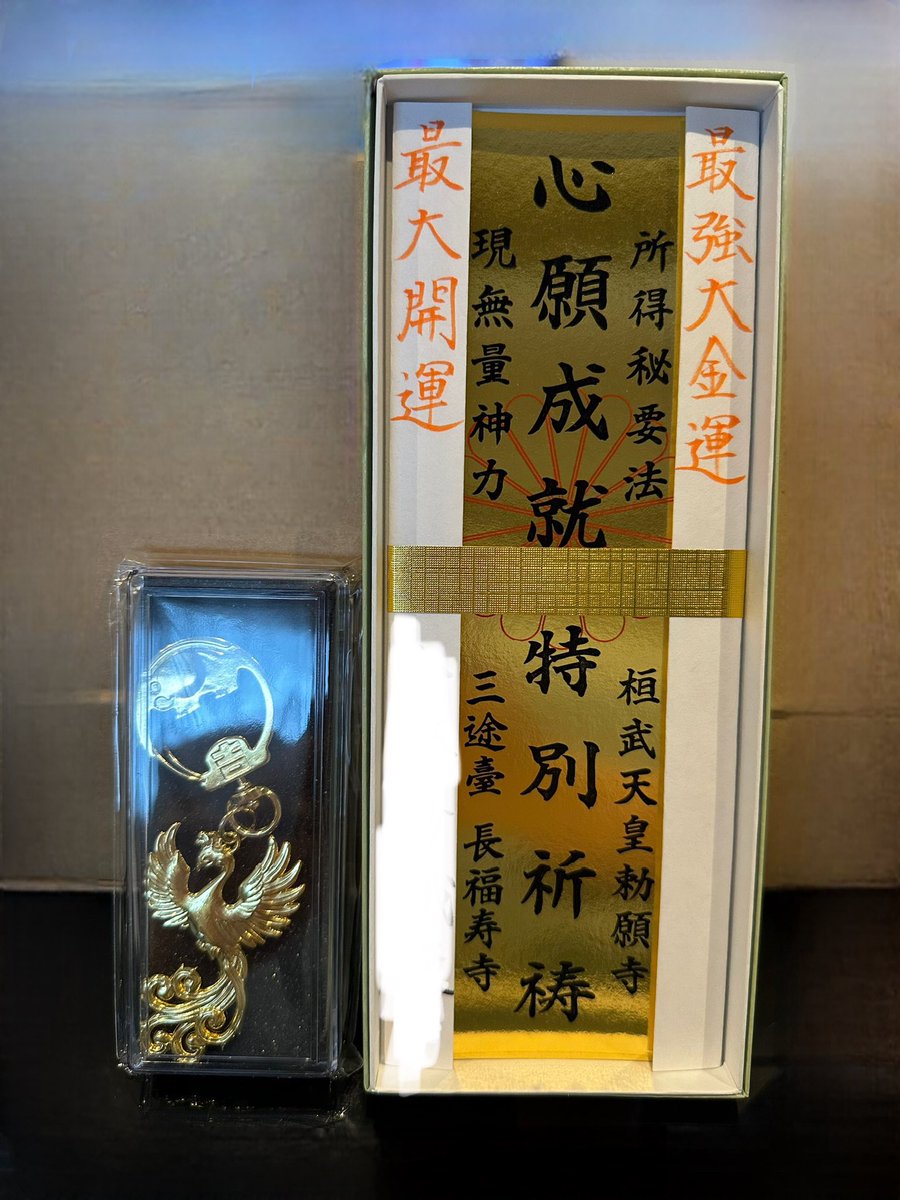 最強大金運
所得秘要法
桓武天皇勅願寺
心願成就特別祈祷
現無量神力
三途臺 長福寿寺
最大開運
吉